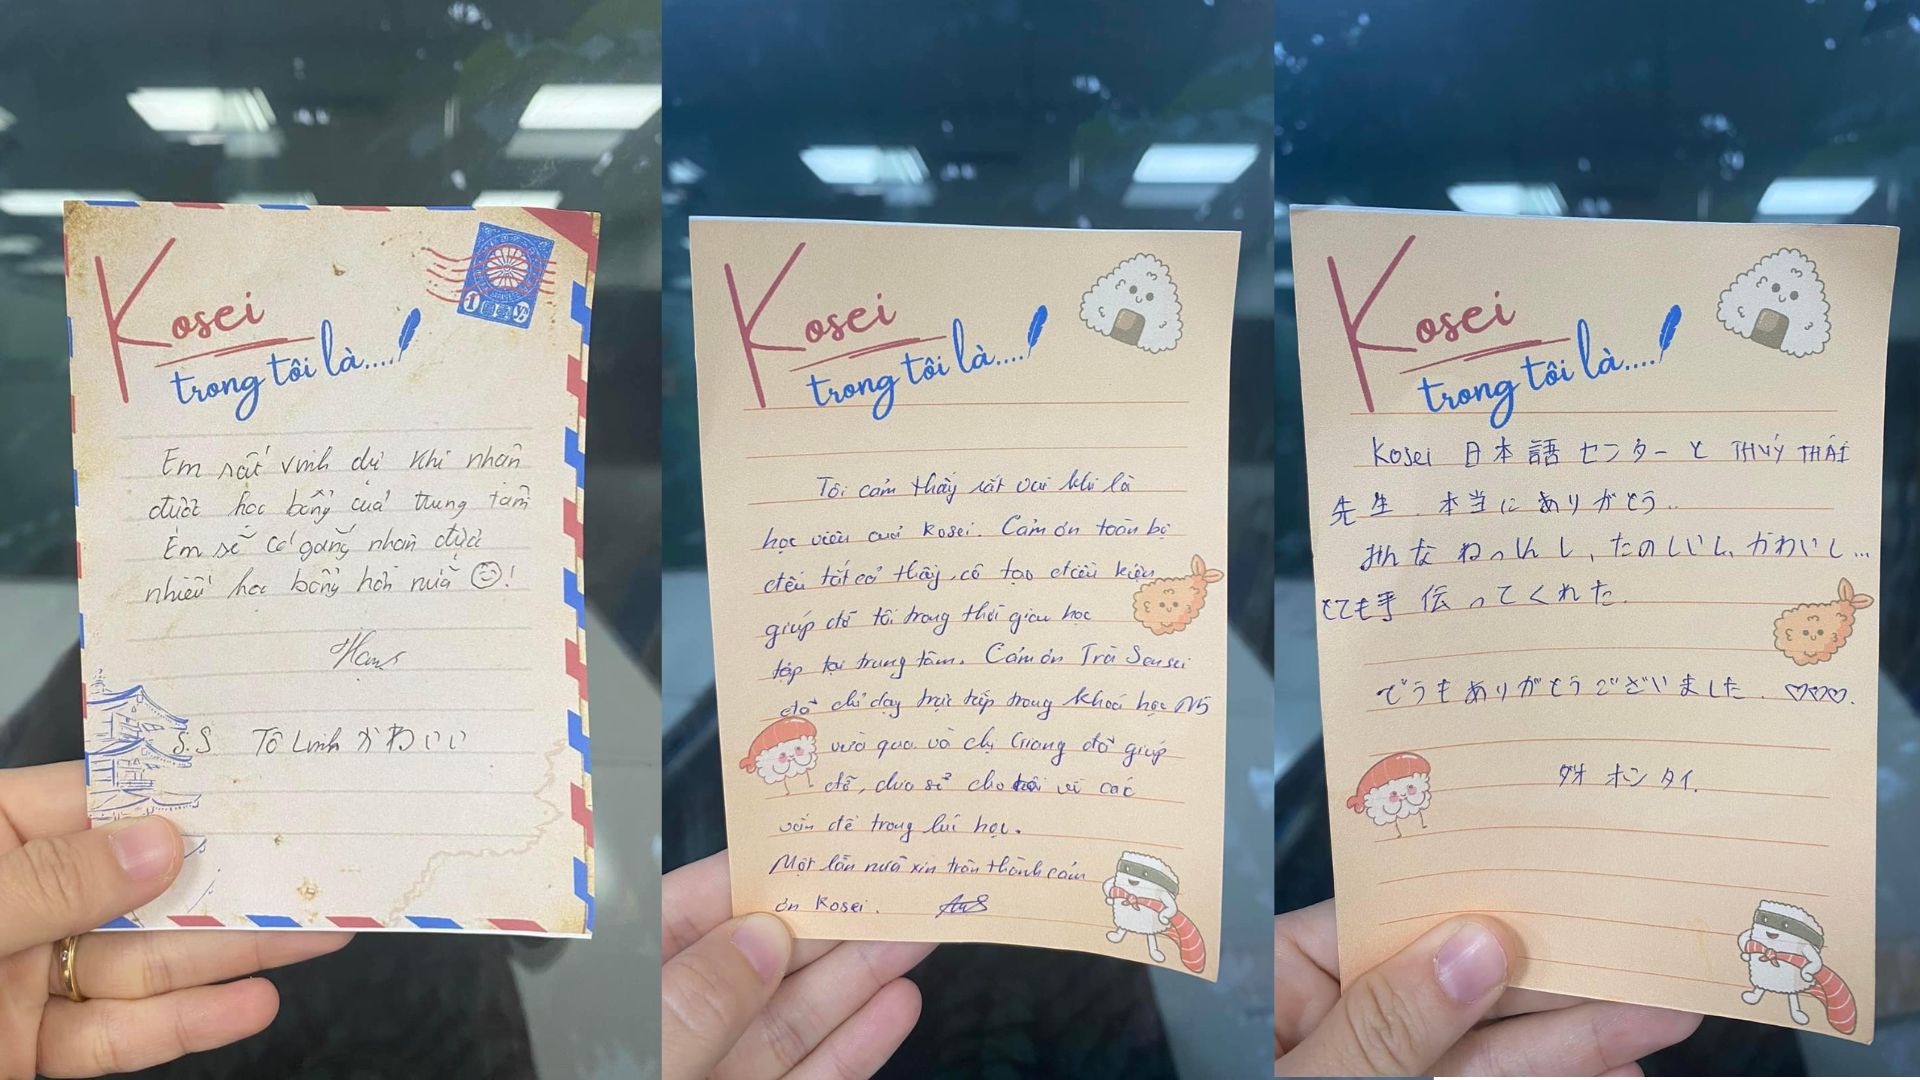 Kosei
trong tôi là....
Em rất vinh dự khi nhận
được học bổng của trung tâm
Em sẽ cố gắng nhận được
nhiều học bổng hơn nữa !
S.S Tô Linh かわいい
Kosei
trong tôi là....
Tôi cảm thấy rất vui khi là
học viên của Kosei. Cảm ơn toàn bộ
tất cả thầy, cô tạo điều kiện
giúp đỡ tôi trong thời gian học
tập tại trung tâm. Cảm ơn Trà Sensei
đã chỉ dạy trực tiếp trong khoá học N5
vừa qua và chị Giang đã giúp
đỡ, chia sẻ cho tôi về các
vấn đề trong lúc học.
Một lần nữa xin trân thành cảm
ơn Kosei.
Kosei
trong tôi là....
Kosei 日本語センターと THUÝ THÁI
先生. 本当にありがとう..
みんなねっしんし、たのしいし、かわいし...
とても手伝ってくれた.
どうもありがとうございました. ♡♡♡.
ホン タイ.